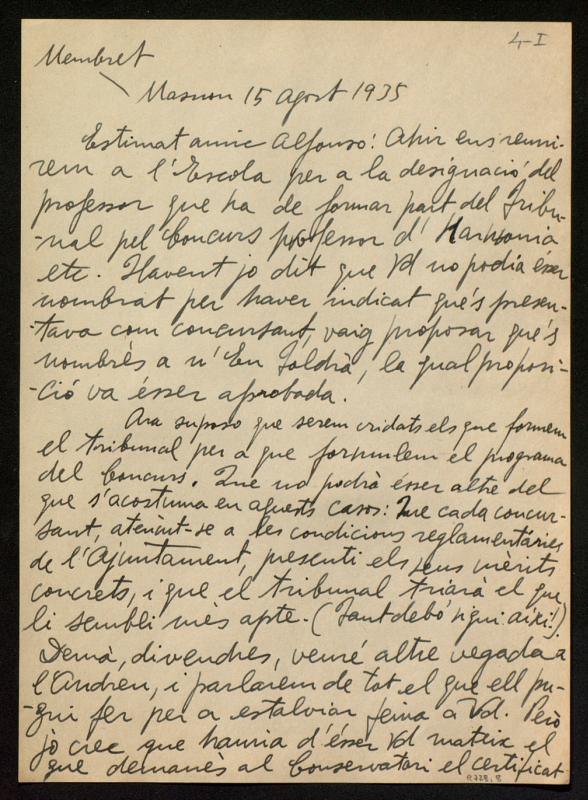 4-I
Membret
Masnou 15 agost 1935
Estimat amic Alfonso: Ahir ens reuni-
rem a l'Escola per a la designació del
professor que ha de formar part del Tribu-
-nal pel Concurs professor d'Harmonia
etc. Havent jo dit que Vd no podia ésser
nombrat per haver indicat qué's presen-
-tava com concursant, vaig proposar qué's
nombrés a n'En Toldrà, la qual proposi-
-ció va ésser aprobada.
Ara suposo que serem cridats els que formem
el tribunal per a que formulem el programa
del Concurs. Que no podrà ésser altre del
que s'acostuma en aquests casos: Que cada concur-
sant, atenint-se a les condicions reglamentàries
de l'Ajuntament, presenti els seus mèrits
concrets, i que el tribunal triarà el que
li sembli més apte. (Tant debó sigui aixi!).
Demà, divendres, veuré altre vegada a
l'Andreu, i parlarem de tot el que ell pu-
-gui fer per a estalviar feina a Vd. Però
jo crec que hauria d'ésser Vd mateix el
que demanés al Conservatori el certificat